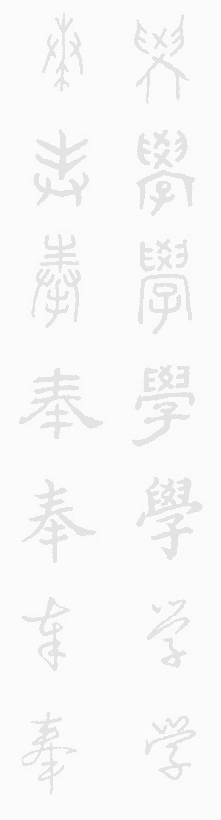 奉 學
奉 學
奉 學
奉 學
奉 學
奉 学
奉 学